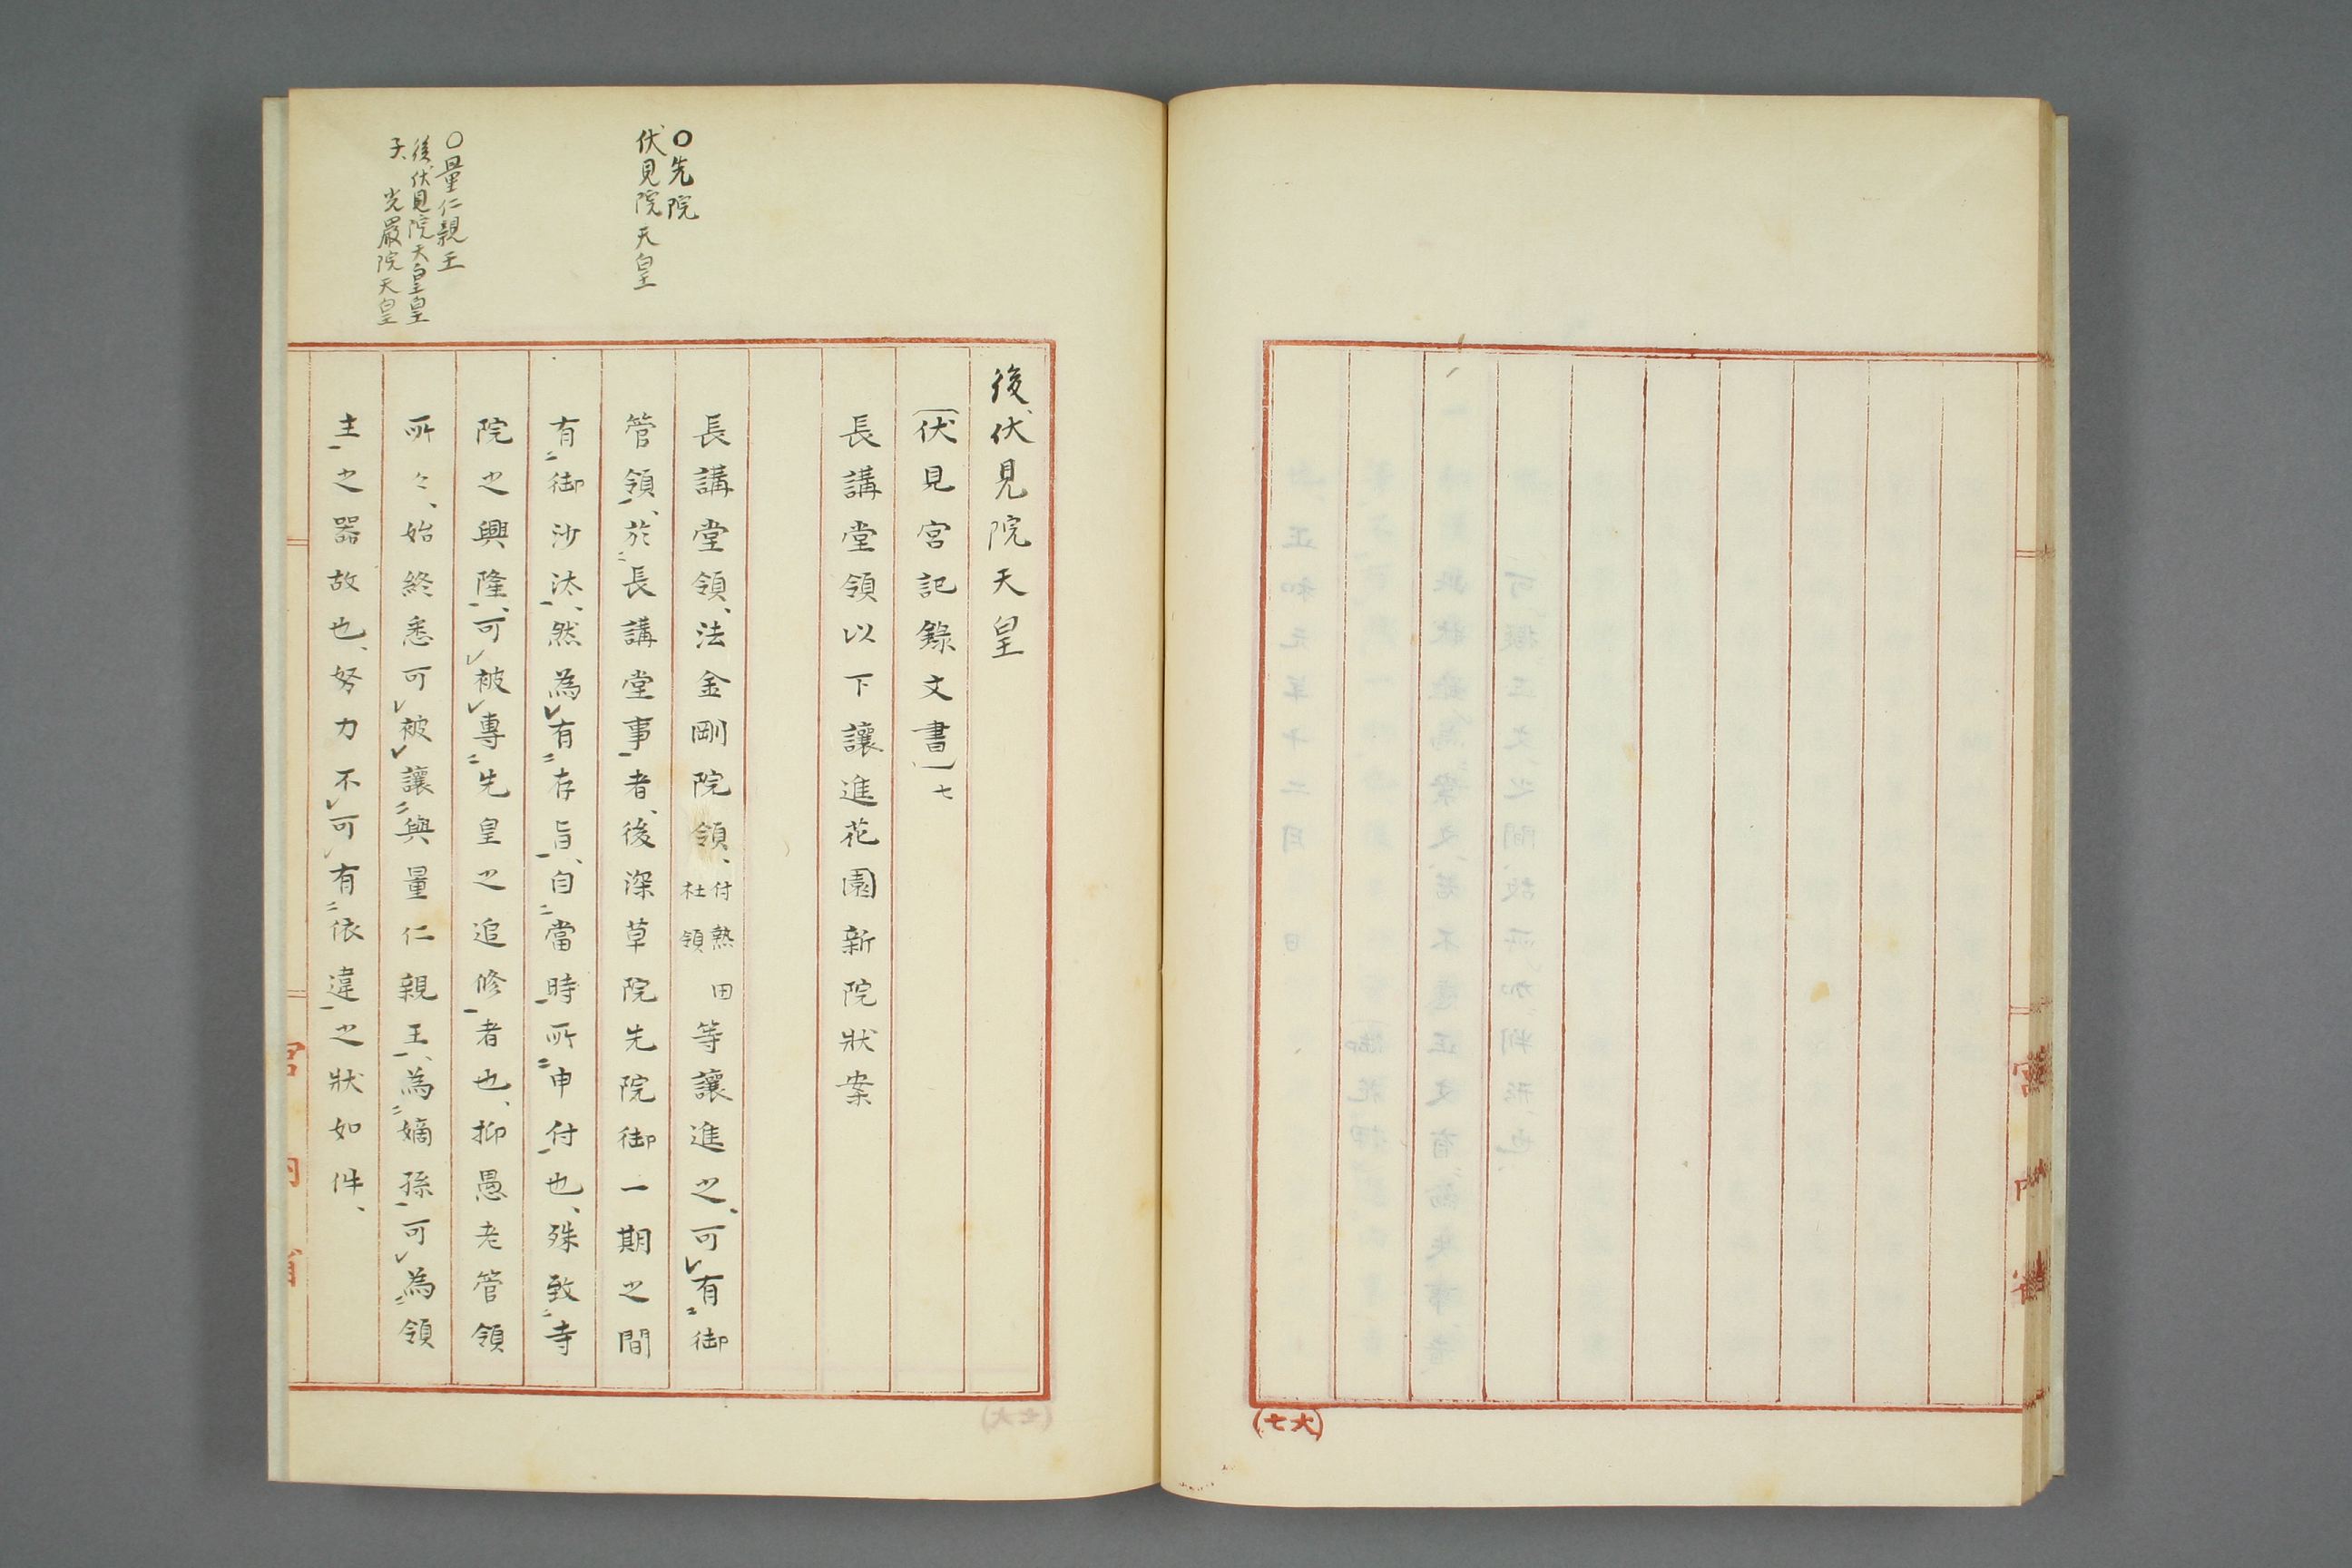 (七大)
宮内省
後伏見院天皇
〔伏見宮記錄文書〕七
長講堂領以下讓進花園新院狀案
長講堂領、法金剛院領、付熱田社領等讓進之、可有御
管領、於長講堂事者、後深草院先院御一期之間
有御沙汰、然為有存旨、自當時所申付也、殊致寺
院之興隆、可被專先皇之追修者也、抑愚老管領
所々、始終悉可被讓與量仁親王、為嫡孫可為領
主之器故也、努力不可有依違之狀如件、
〇先院
伏見院天皇
〇量仁親王
後伏見院天皇皇
子、光嚴院天皇